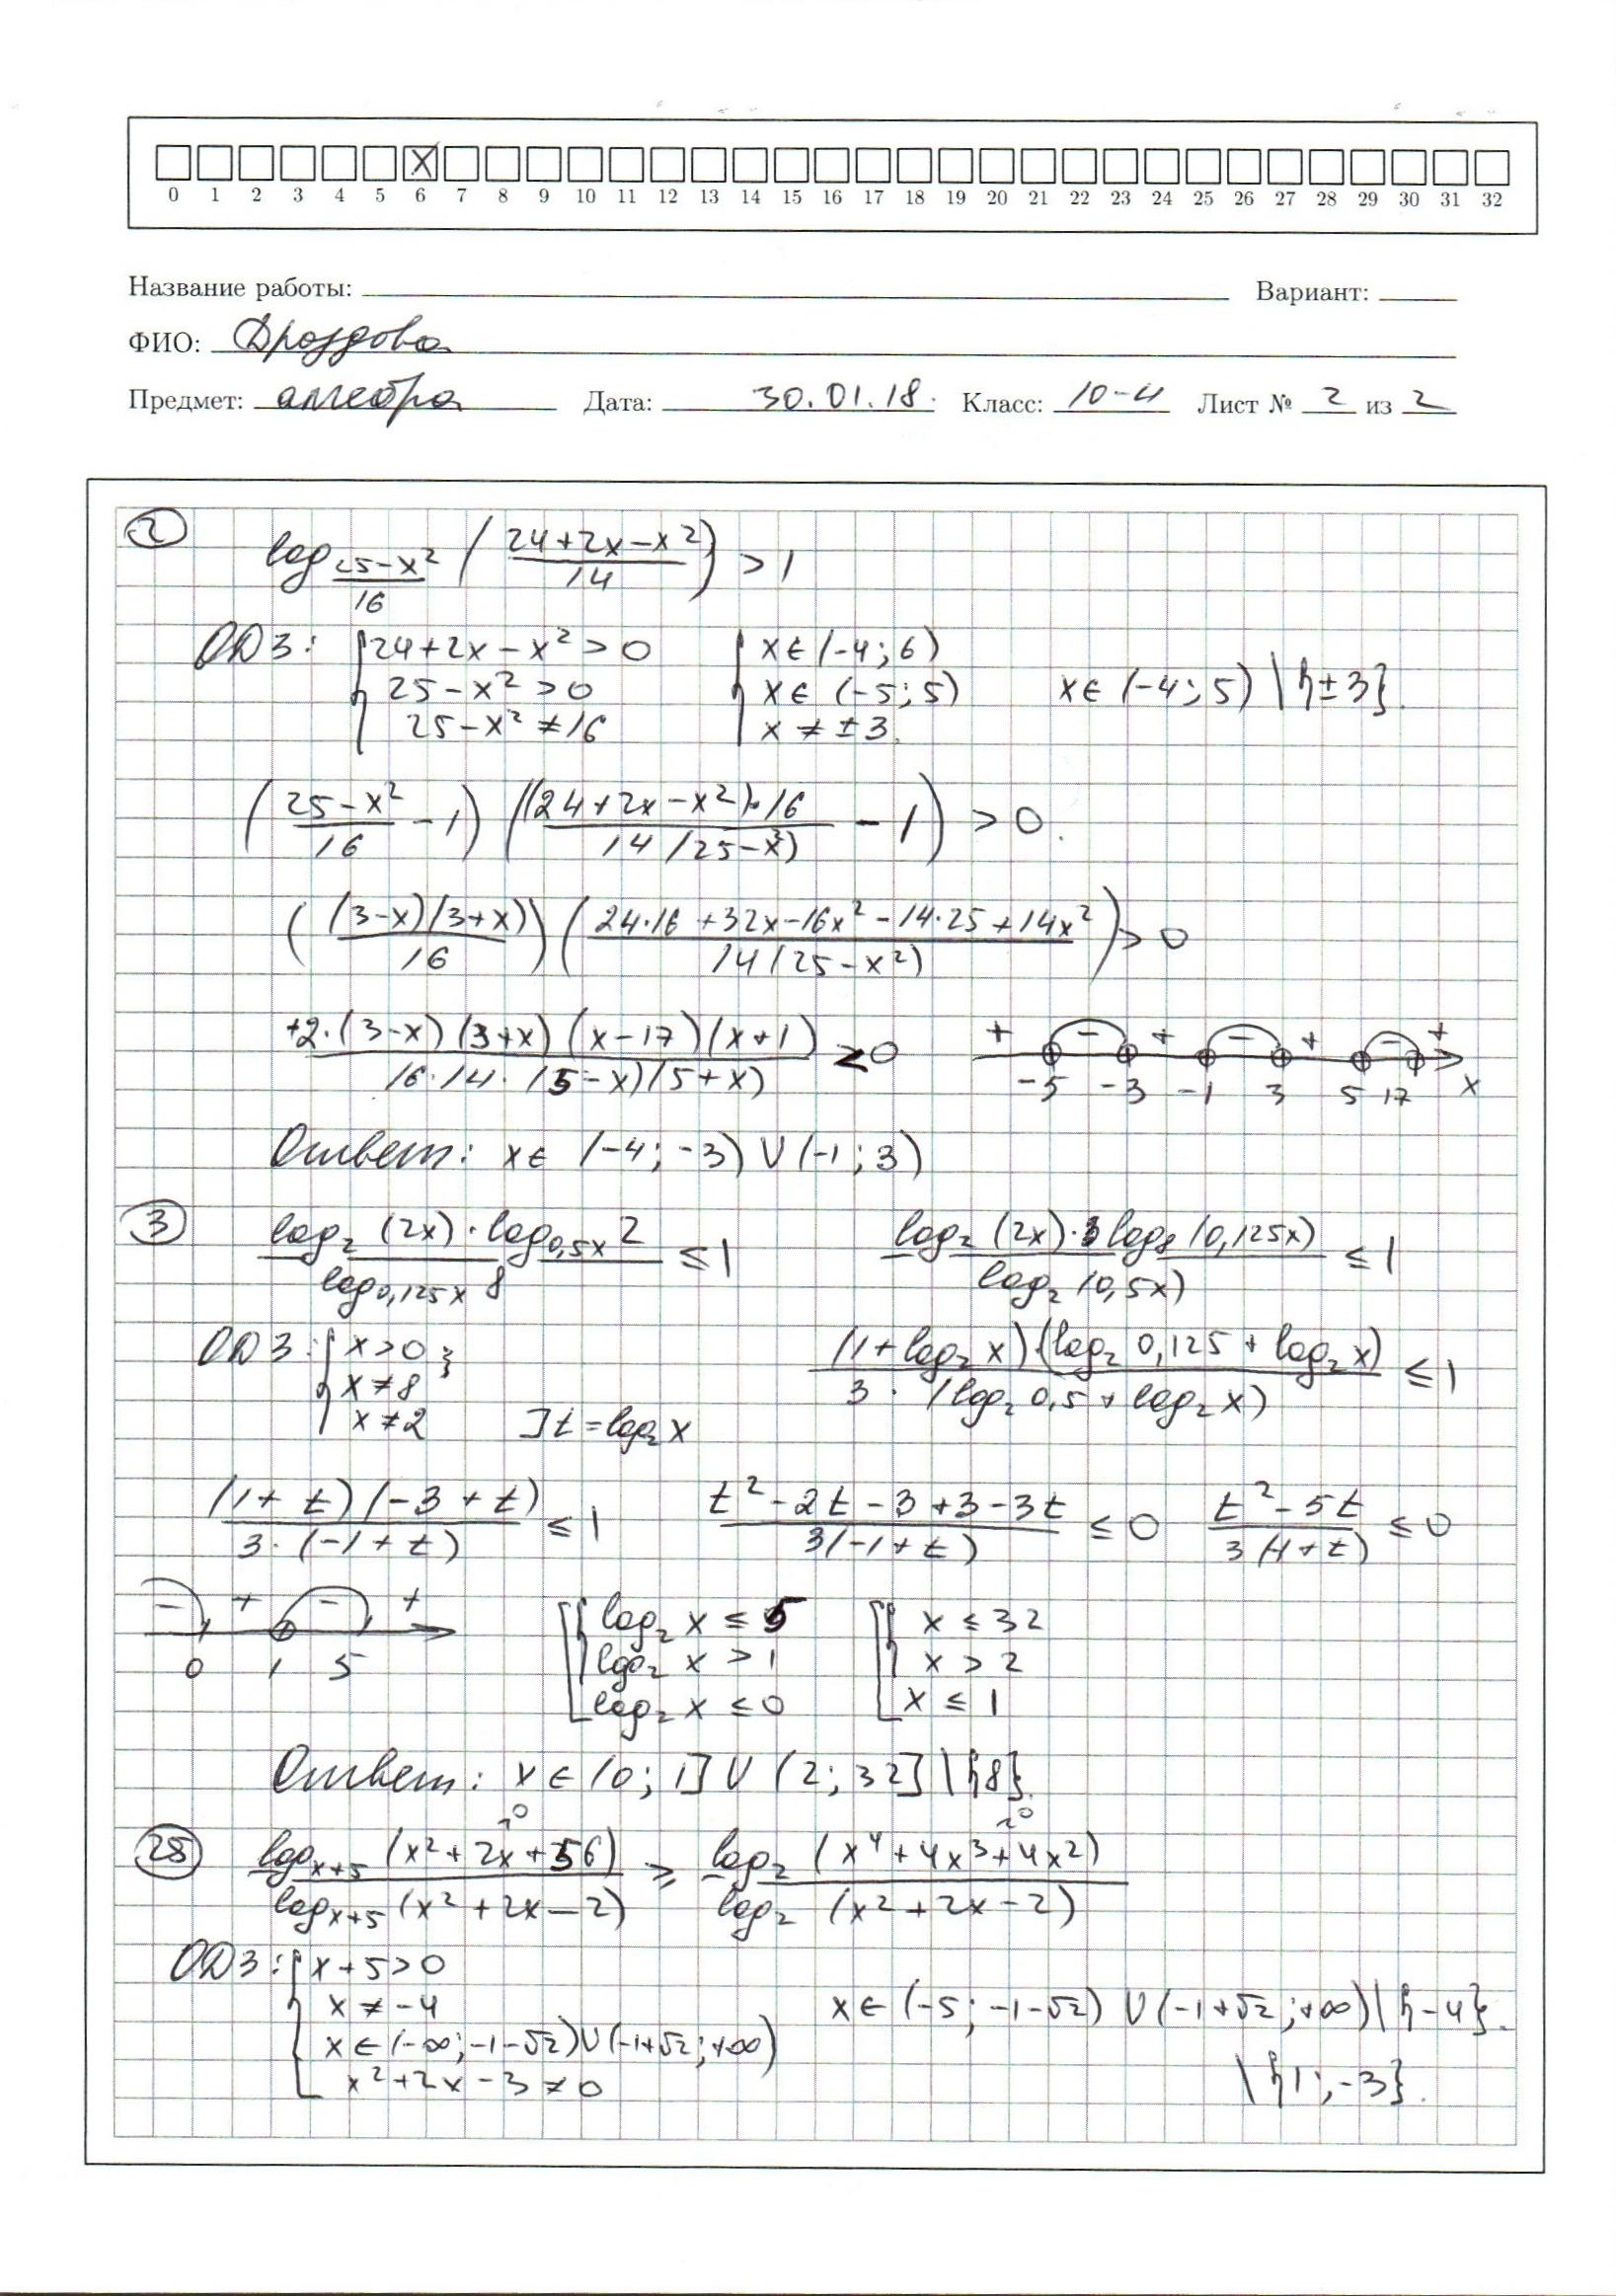 X
0 1 2 3 4 5 6 7 8 9 10 11 12 13 14 15 16 17 18 19 20 21 22 23 24 25 26 27 28 29 30 31 32
Название работы: Вариант:
ФИО: Дроздова
Предмет: алгебра Дата: 30.01.18. Класс: 10-4 Лист № 2 из 2
2
log_((25-x²)/16) ((24+2x-x²)/14) > 1
ОДЗ: { 24+2x-x² > 0 { x ∈ (-4; 6)
25-x² > 0 x ∈ (-5; 5) x ∈ (-4; 5) \ {±3}.
25-x² ≠ 16 x ≠ ±3.
((25-x²)/16 - 1) (((24+2x-x²)·16)/(14(25-x²)) - 1) > 0.
(((3-x)(3+x))/16) ((24·16+32x-16x²-14·25+14x²)/(14(25-x²))) > 0
(+2·(3-x)(3+x)(x-17)(x+1))/(16·14·(5-x)(5+x)) < 0 + - + - + - +
-5 -3 -1 3 5 17 x
Ответ: x ∈ (-4; -3) ∪ (-1; 3)
3
(log₂(2x)·log_(0,5x) 2)/(log_(0,125x) 8) ≤ 1 (log₂(2x)·log₈(0,125x))/(log₂(0,5x)) ≤ 1
ОДЗ: { x > 0 } ((1+log₂x)·(log₂0,125+log₂x))/(3·(log₂0,5+log₂x)) ≤ 1
x ≠ 8
x ≠ 2 ]t = log₂x
((1+t)(-3+t))/(3·(-1+t)) ≤ 1 (t²-2t-3+3-3t)/(3(-1+t)) ≤ 0 (t²-5t)/(3(-1+t)) ≤ 0
- + - + [ { log₂x ≤ 5 [ { x ≤ 32
0 1 5 log₂x > 1 x > 2
log₂x ≤ 0 x ≤ 1
Ответ: x ∈ (0; 1] ∪ (2; 32] \ {8}.
28
(log_(x+5)(x²+2x+56))/(log_(x+5)(x²+2x-2)) ≥ (log₂(x⁴+4x³+4x²))/(log₂(x²+2x-2))
ОДЗ: { x+5 > 0
x ≠ -4 x ∈ (-5; -1-√2) ∪ (-1+√2; +∞) \ {-4}.
x ∈ (-∞; -1-√2) ∪ (-1+√2; +∞)
x²+2x-3 ≠ 0 \ {1; -3}.